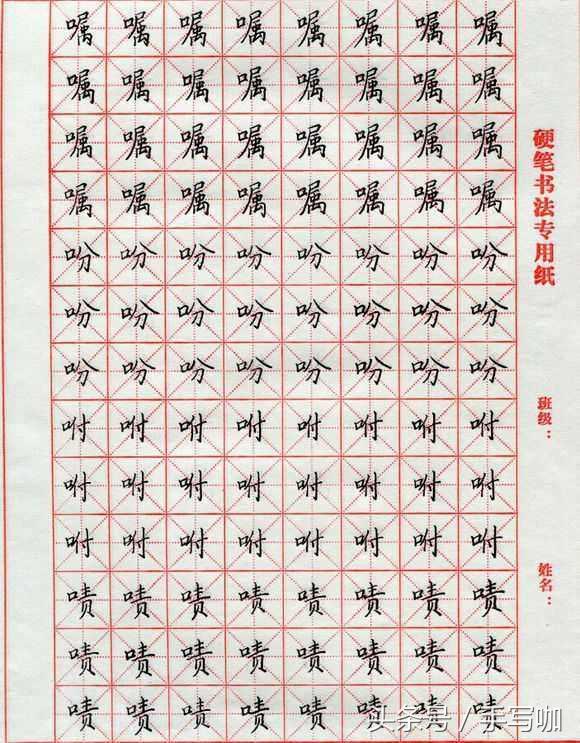 嘱嘱嘱嘱嘱嘱嘱嘱
嘱嘱嘱嘱嘱嘱嘱嘱
嘱嘱嘱嘱嘱嘱嘱嘱
嘱嘱嘱嘱嘱嘱嘱嘱
吩吩吩吩吩吩吩吩
吩吩吩吩吩吩吩吩
吩吩吩吩吩吩吩吩
咐咐咐咐咐咐咐咐
咐咐咐咐咐咐咐咐
咐咐咐咐咐咐咐咐
啧啧啧啧啧啧啧啧
啧啧啧啧啧啧啧啧
啧啧啧啧啧啧啧啧
硬笔书法专用纸
班级：
姓名：
头条号／手写咖